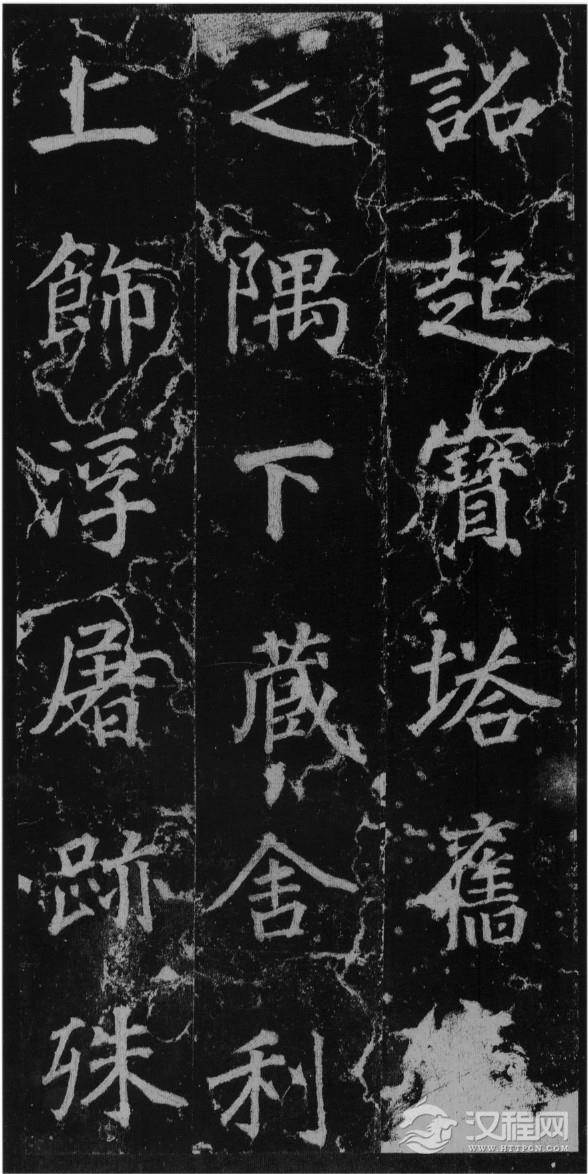 詔起寶塔舊
之隅下蔵舎利
上飾浮屠跡殊
汉程网
WWW.HTTPCN.COM